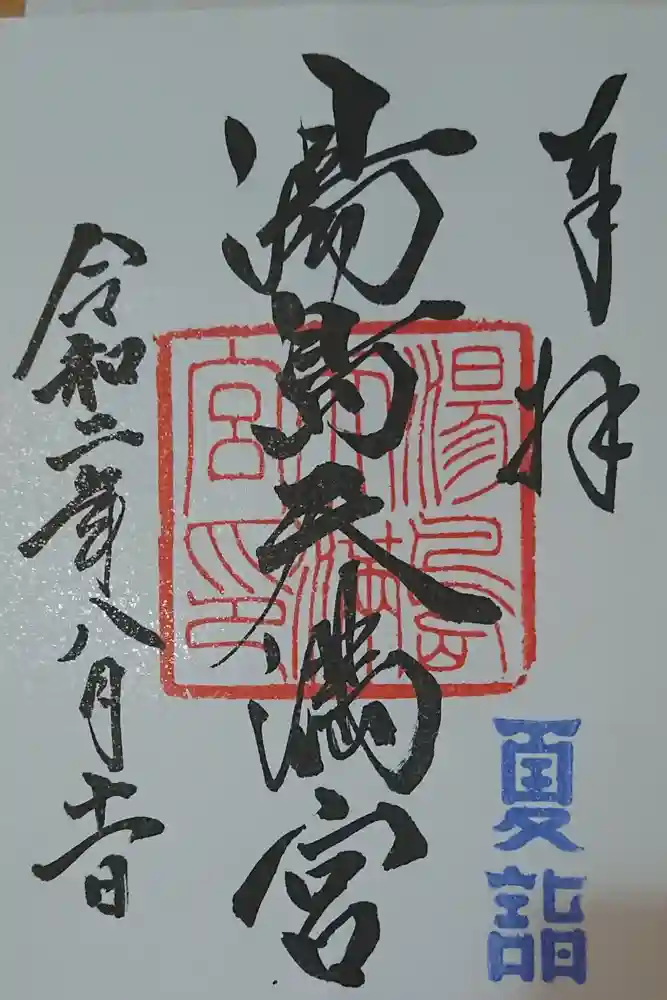 奉拝
湯島天満宮
令和二年八月十一日
湯島
天満
宮印
夏詣